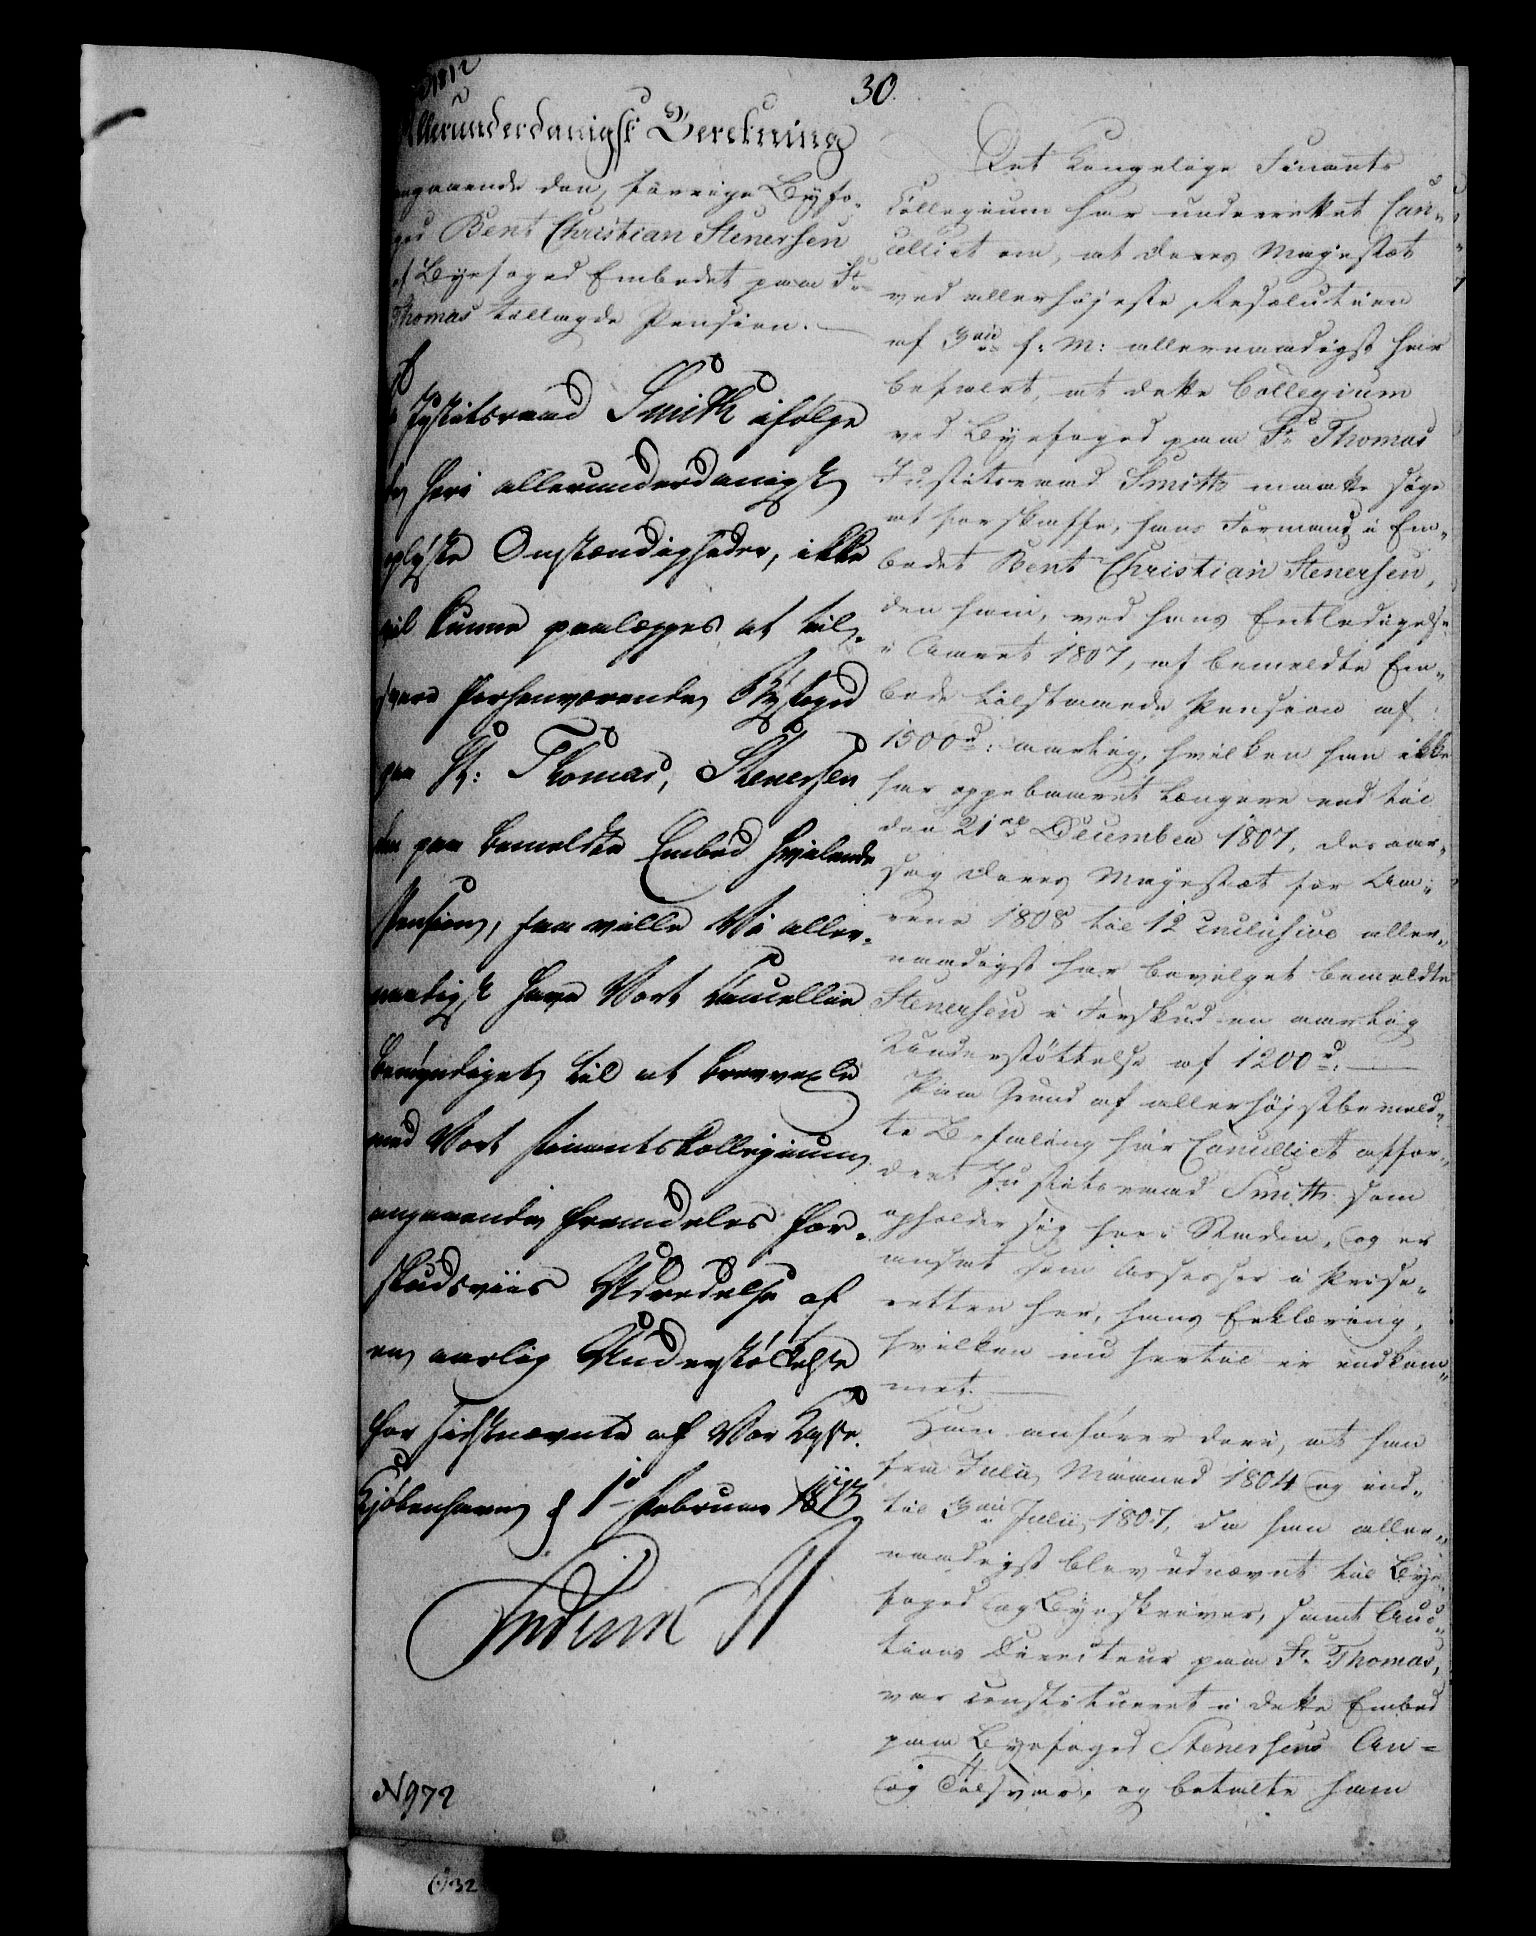 1812
30.
Allerunderdanigst Beretning
angaaende den, forrige Byfo-
ged Bent Christian Stenersen
af Byefoged Embedet paa St.
Thomas tillagde Pension.
Justitsraad Smith ifølge
de heri allerunderdanigst
oplyste Omstændigheder, ikke
vil kunne paalægges at til-
svare forhenværende Byfoged
paa St: Thomas, Stenersen
den paa bemeldte Embed hvilende
Pension, saa ville Vi aller-
naadigst have Vort Cancellie
bemyndiget til at brevvexle
med Vort FinantsCollegium
angaaende fremdeles For-
skudsviis Udredelse af
en aarlig Understøttelse
for sidstnævnte af Vor Kasse.
Kjøbenhavn d 1ste Februar 1813
Frederik R
N972
32
Det Kongelige Finants
Collegium har underrettet Can-
celliet om, at Deres Majestæt
ved allerhøjeste Resolution
af 3die f: M: allernaadigst har
befalet, at dette Collegium
ved Byefoged paa St. Thomas
Justitsraad Smith maatte søge
at forskaffe, hans Formand i Em-
bedet Bent Christian Stenersen,
den ham, ved hans Entledigelse
i Aaret 1807, af bemeldte Em-
bede tilstaaede Pension af
1500rd: aarlig, hvilken han ikke
har oppebaaret længere end til
den 21de December 1807, desaar-
sag Deres Majestæt for Aa-
rene 1808 til 12 inclusive aller-
naadigst har bevilget bemeldte
Stenersen i Forskud en aarlig
Understøttelse af 1200rd:
Paa Grund af allerhøjstbemeld-
te Befaling har Cancelliet affor-
dret Justitsraad Smith som
opholder sig her i Staden, og er
ansat som Assessor i Prise-
retten her, hans Erklæring,
hvilken nu hertil er indkom-
met.
Han anfører deri, at han
fra Julii Maaned 1804 og ind-
til 3die Julii 1807, da han aller-
naadigst blev udnævnt til Bye-
foged og Byeskriver, samt Auc-
tions Directeur paa St. Thomas,
var constitueret i dette Embed
paa Byefoged Stenersens An-
og Tilsvar, og betalte ham